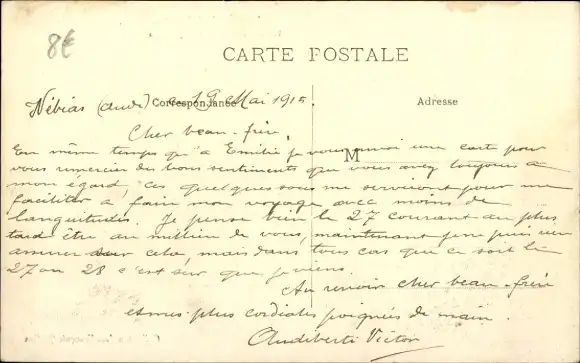 8€
CARTE POSTALE
Nébias (aude) Correspondance 19 Mai 1915.
Adresse
Cher beau-frère,
En même temps qu'a Emilie je vous envoi une carte pour
M
vous remercier des bons sentiments que vous avez toujours a
mon égard, ces quelques sous me serviront pour me
faciliter a faire mon voyage avec moins de
Je pense bien le 27 courant au plus
tard être au millieu de vous, maintenant je ne puis rien
assurer sur cela, mais dans tous cas que ce soit le
27 ou 28 c'est sur que je viens.
Au revoir cher beau-frère
et mes plus cordiales poignées de main.
Audibert Victor